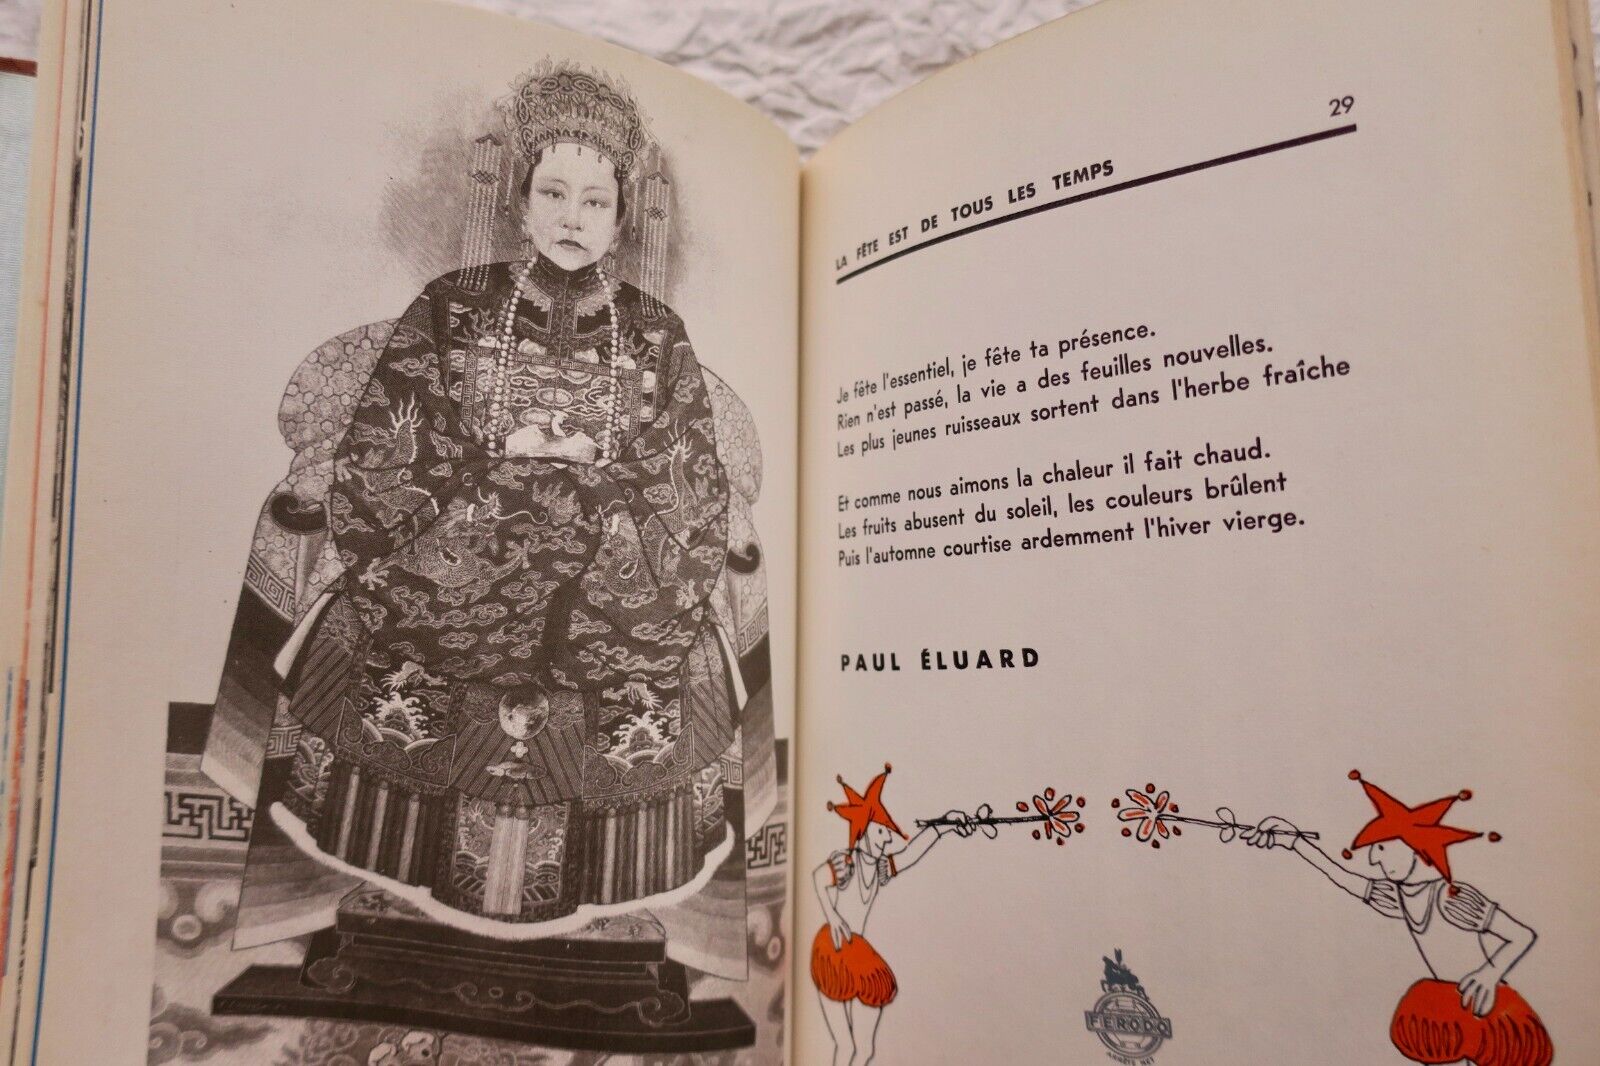 29
LA FÊTE EST DE TOUS LES TEMPS
Je fête l'essentiel, je fête ta présence.
Rien n'est passé, la vie a des feuilles nouvelles.
Les plus jeunes ruisseaux sortent dans l'herbe fraîche
Et comme nous aimons la chaleur il fait chaud.
Les fruits abusent du soleil, les couleurs brûlent
Puis l'automne courtise ardemment l'hiver vierge.
PAUL ÉLUARD
FERODO
ARRÊTE NET